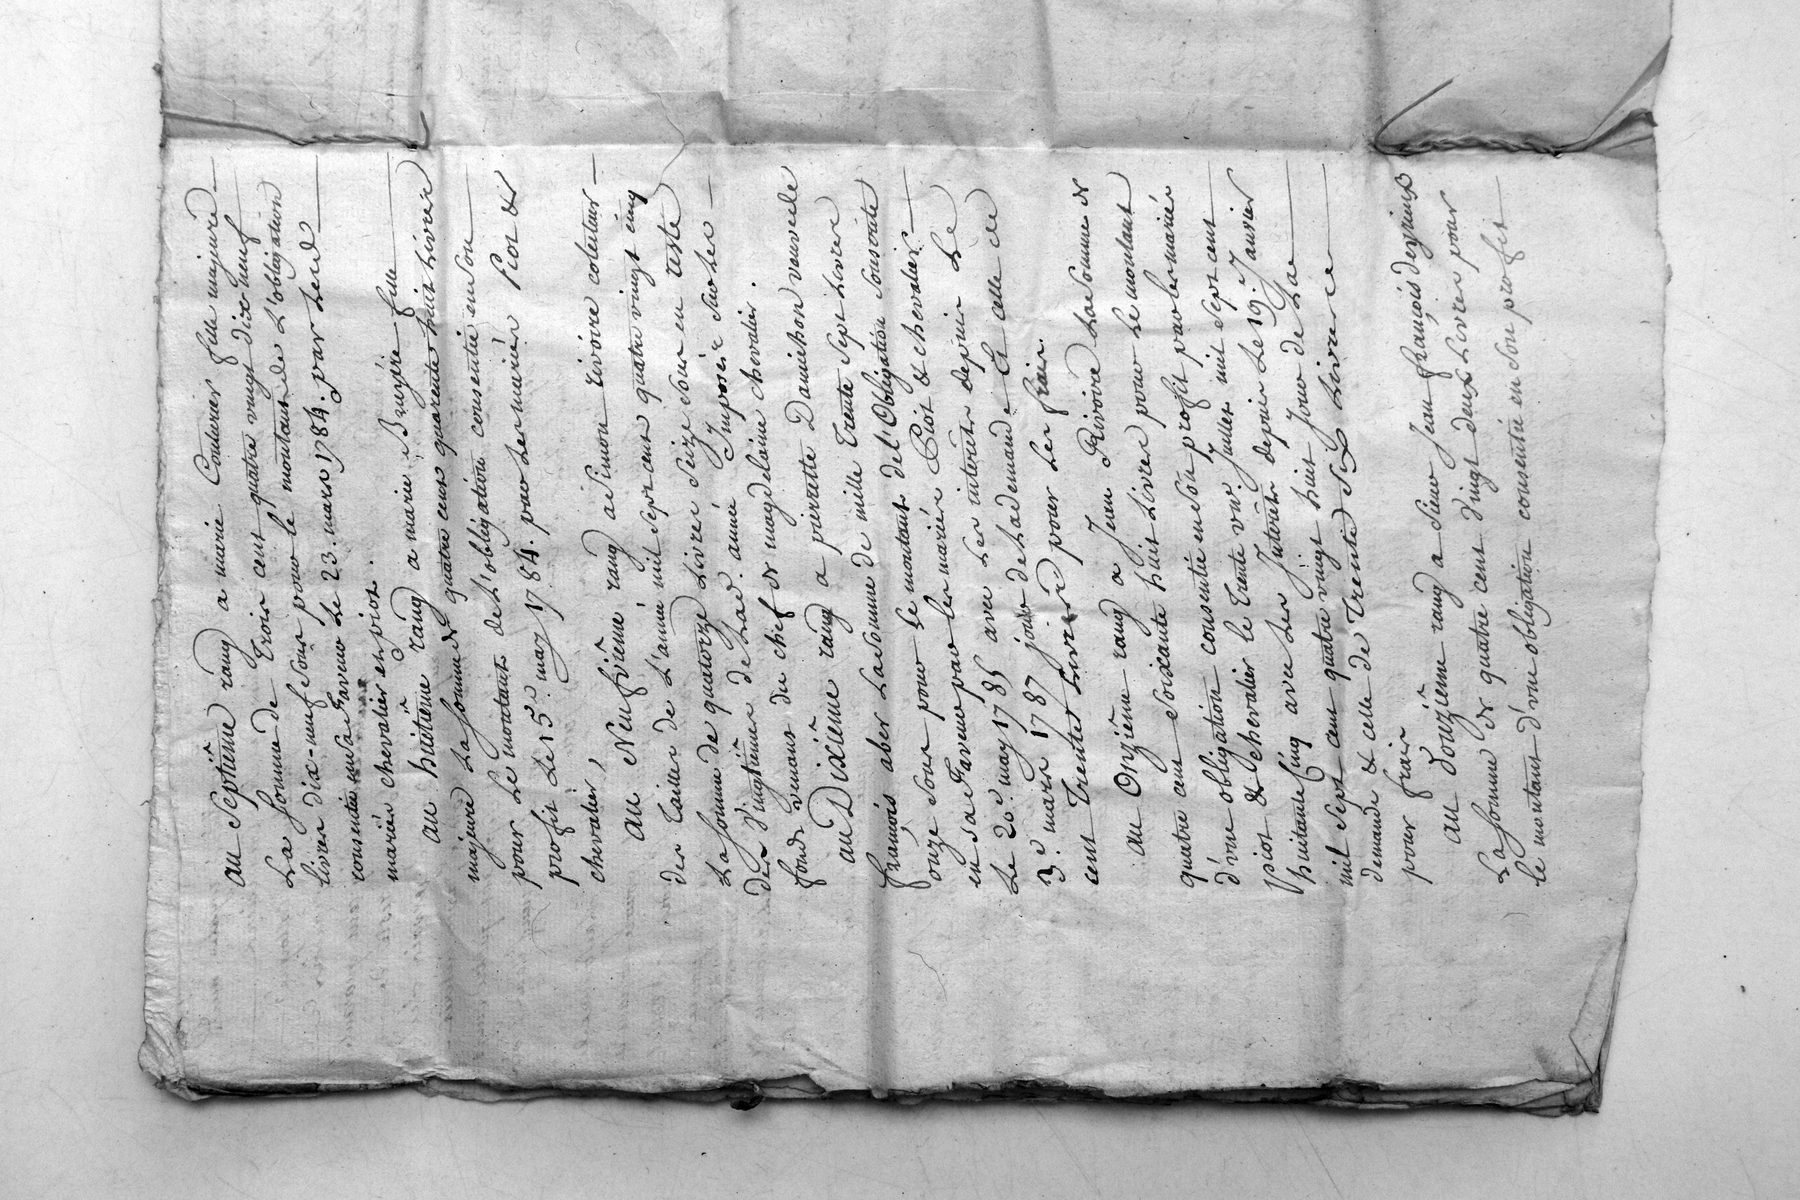 au Septiême rang a marie Couturier fille majeure
La somme de Trois cent quatre vingt dix neuf
livres dix-neuf sous pour le montant de L'obligation
consentie en sa faveur Le 23. mars 1784. par Lesd
mariés chevalier et piot.
au hûitiême rang a marie Bruyère fille
majeure La somme de quatre cent quarente huit Livres
pour Le montant de L'obligation consentie en son
profit Le 15e may 1784. par Les mariés Piot &
chevalier,
au Neufviême rang a Simon rivoire coleiteur
des Tailles de L'année mil sept cent quatre vingt cinq
La somme de quatorze Livres Seize Sous en reste
des Vingtiêmes de Lad. année Imposés Sur Les
fonds venants du chef de magdelaine chevalier.
au Dixiême rang a pierrette Danichon veuve de
françois aber La somme de mille Trente Sept Livres
onze Sous pour Le montant de L'Obligation Souscrite
en sa faveur par Les mariés Piot & chevalier
Le 20e may 1785 avec Les intérêts depuis Le
3e mars 1787 jour de La demande Et celle de
cent Trente Livres pour Les frais.
au Onziême rang a Jean Rivoire La somme de
quatre cent Soixante huit Livres pour Le montant
d'une obligation consentie en son profit par Les mariés
piot & chevalier le Trente un Juillet mil Sept cent
huitante Cinq avec Les Intérêts depuis Le 19. Janvier
mil Sept cent quatre vingt huit Jour de La
demande & celle de Trente Six Livres
pour frais
au Douziême rang a Sieur Jean françois
La somme de quatre cent Vingt deux Livres pour
le montant d'une obligation consentie en son profit